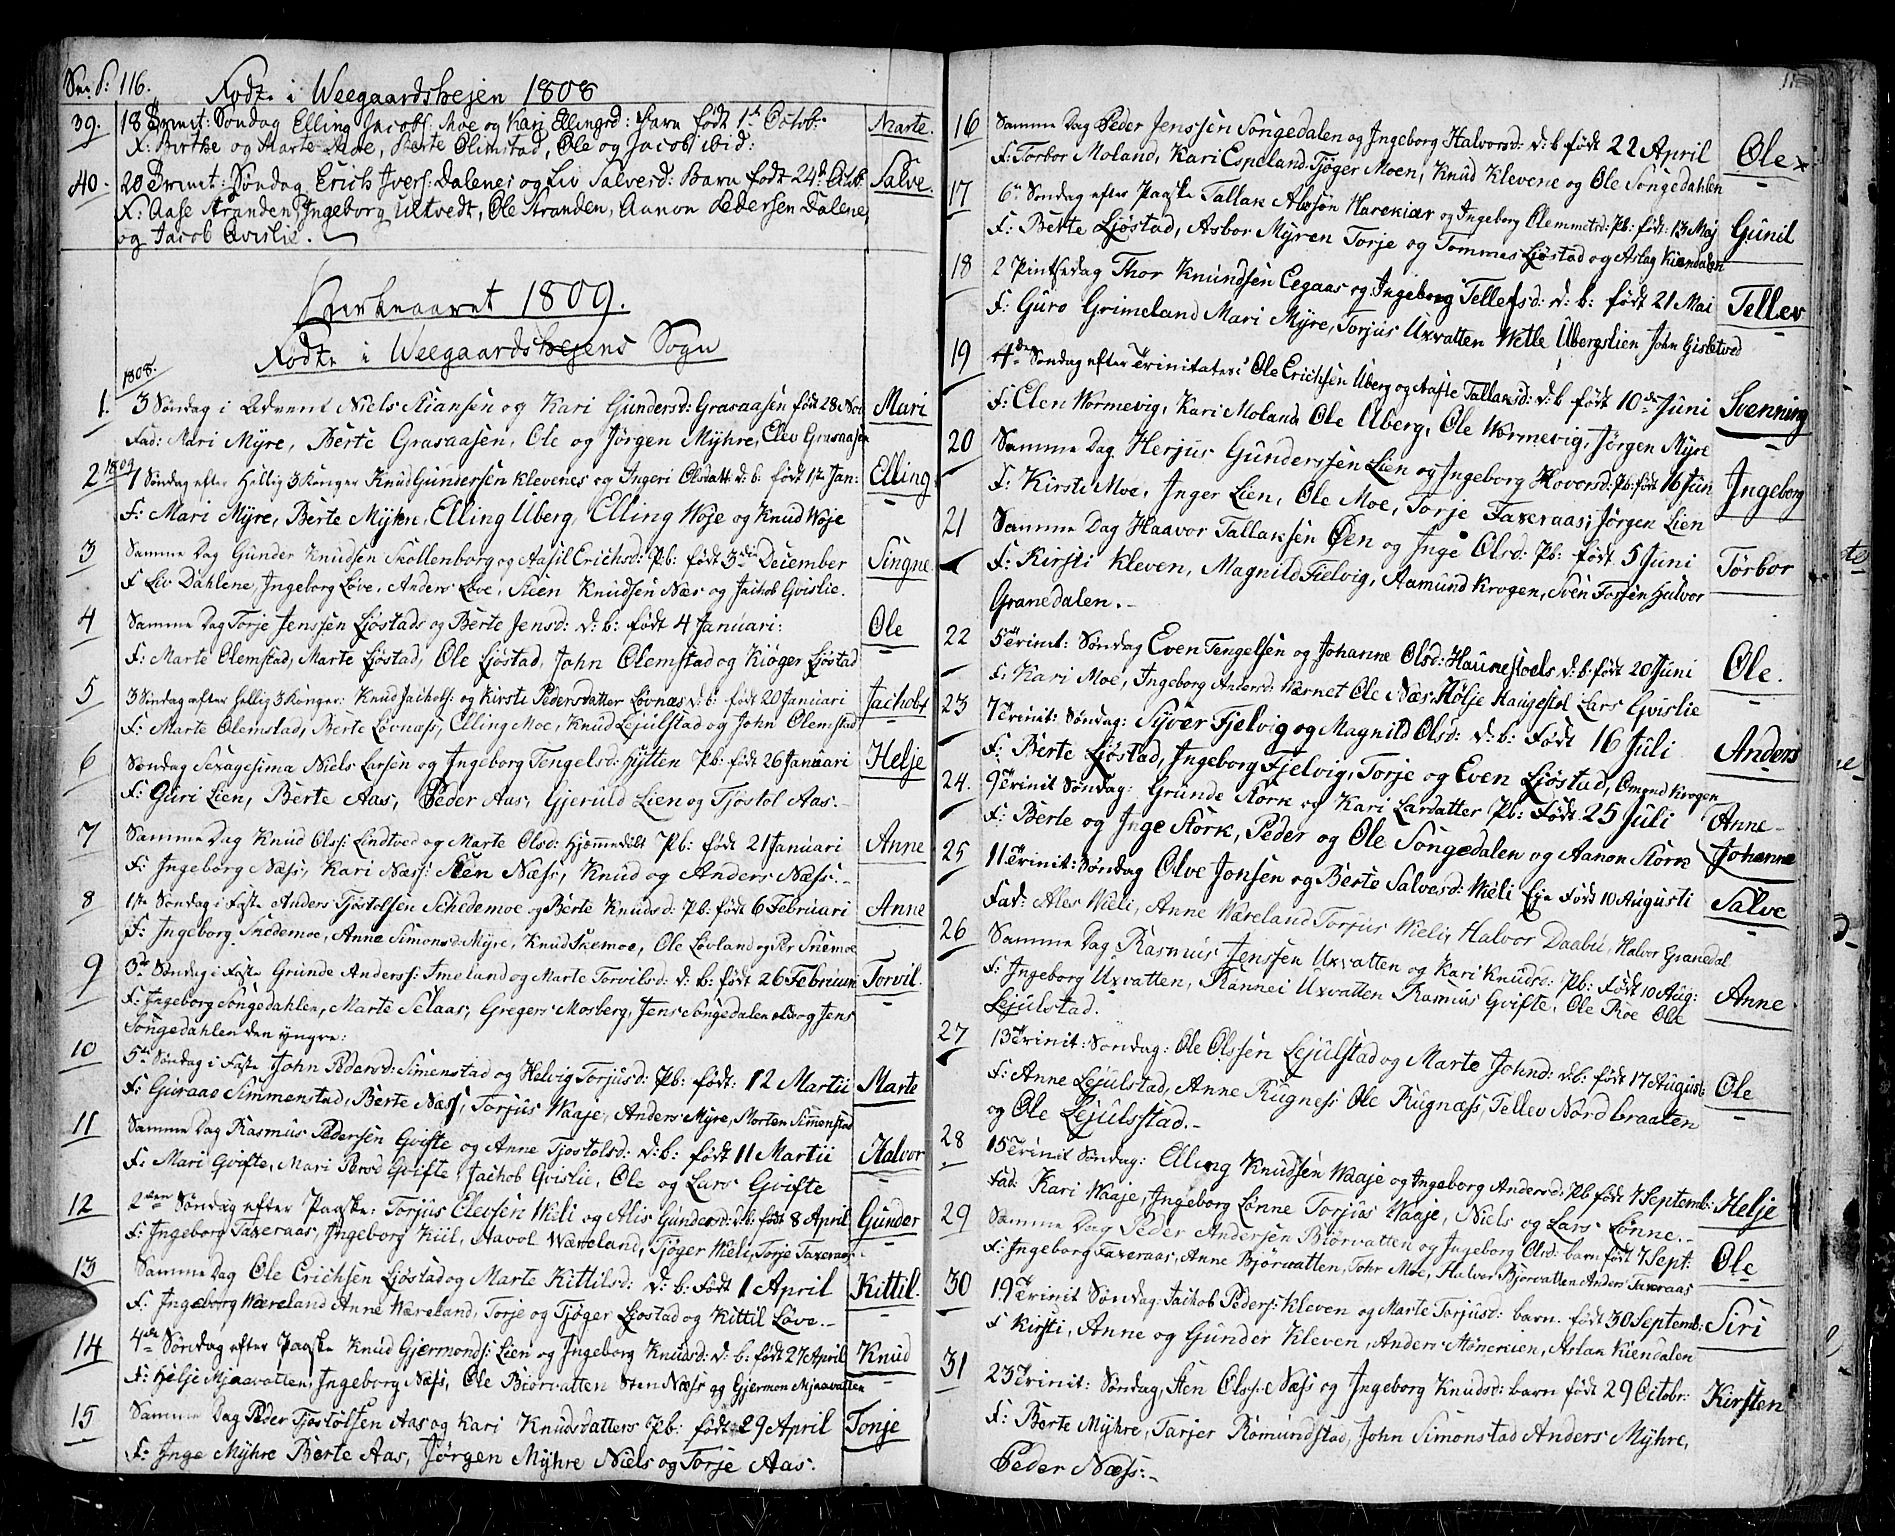 116.
Fødte i Weegaardsheien 1808
39. 18 Trinit: Søndag Elling Jacobs: Moe og Kari Ellingsd: Barn født 1te Octob: Marte.
F: Birthe og Marte Moe, Berte Olimstad, Ole og Jacob ibid:
40. 20 Trinit: Søndag Erich Ivers: Dalenes og Liv Salvesd: Barn født 24de Octob: Salve.
F: Aase Stranden, Ingeborg Ultvedt, Ole Stranden, Aanon Pedersen Dalene,
og Jacob Qvislie.
Kirkeaaret 1809.
Fødte i Weegaardsheiens Sogn
1808.
1. 3 Søndag i Advent Niels Stiansen og Kari Gundersd: Grasaasen født 28 Nov Mari
Fad: Mari Myre, Berte Grasaasen, Ole og Jørgen Myhre, Elev Grasaasen
1809
2 1 Søndag efter Hellig 3 Konger Knud Gundersen Klevenes og Ingeri Olsdatt: d: b: født 1te Jan: Elling
F: Mari Myre, Berte Myhre, Elling Uberg, Elling Woje og Knud Woje
3 Samme Dag Gunder Knudsen Skollenborg og Aasil Erichsd: Pb: født 3die December Singne
F Liv Dahlene, Ingeborg Løve, Anders Løve, Steen Knudsen Næs og Jachob Gvislie.
4 Samme Dag Torje Jenssen Ljøstads og Berte Jensd: d: b: født 4 Januari: Ole
F: Marte Olemstad, Marte Ljøstad, Ole Ljøstad, John Olemstad og Kiøger Ljøstad
5 3 Søndag efter Hellig 3 Konger: Knud Jachobs: og Kirsti Pedersdatter Løvnæs d: b: født 20 Januari Jachob
F: Marte Olemstad, Berte Løvnæss, Elling Moe, Knud Lejulstad og John Olemstad
6 Søndag Sexagesima Niels Larsen og Ingeborg Tengelsd: Hytten Pb: født 26 Januari Helje
F: Guri Lien, Berte Aas, Peder Aas, Gjeruld Lien og Tjøstol Aas.
7 Samme Dag Knud Olss: Lindtved og Marte Olsd: Hjemmedølt Pb: født 21 Januari Anne
F: Ingeborg Næss, Kari Næss: Sten Næss, Knud og Anders Næss.
8 1ste Søndag i Faste Anders Tjøstolsen Schedemoe og Berte Knudsd: Pb: født 6 Februari Anne
F: Ingeborg Skedemoe, Anne Simonsd: Myre, Knud Skemoe, Ole Løvland og Per Skemoe
9 3de Søndag i Faste Grunde Anderss: Imeland og Marte Torvilsd: d: b: født 26 Februari Torvil.
F: Ingeborg Songedahlen, Marte Selaas, Gregers Mosberg, Jens Songedalen old: og Jens
Songedahlen den yngre:
10 5te Søndag i Faste John Pedersd: Simenstad og Helvig Torjusd: Pb: født: 12 Martii Marte
F: Guraae Simmenstad, Berte Næss, Torjus Waaje, Anders Myre, Morten Simenstad
11 Samme Dag Rasmus Pedersen Gvifte og Anne Tjøstolsd: d: b: født 11 Martii Halvor
F: Mari Gvifte, Mari Persd Gvifte, Jachob Gvislie, Ole og Lars Gvifte
12 2den Søndag efter Paaske: Torjus Elevsen Wiki og Alis Gundersd: d: b: født 8 April Gunder
F: Ingeborg Taxeraas, Ingeborg Kiil, Aavol Wæreland, Tjøger Wieli, Torje Taxeraas
13 Samme Dag Ole Erichsen Ljøstad og Marte Kittilsd: d: b: født 1 April Kittil.
F: Ingeborg Wæreland Anne Wæreland, Torje og Tjøger Ljøstad og Kittil Løve.
14 4de Søndag efter Paaske Knud Gjermonds: Lien og Ingeborg Knudsd: d: b: født 27 April Knud
F: Helje Mjaavatten, Ingeborg Næss, Ole Biørvatten Sten Næss og Gjermon Mjaavatten
15 Samme Dag Peder Tjøstolsen Aas og Kari Knudsdatters Pb: født 29 April Tonje
F: Inge Myhre Berte Aas, Jørgen Myhre Niels og Torje Aas:
16 Samme Dag Peder Jenssen Songedalen og Ingeborg Halvorsd: d: b født 22 April Ole
F: Torbor Moland, Kari Espeland Tjøger Moen, Knud Klevene og Ole Songedahlen
17 6te Søndag efter Paaske Tallak Alvsøn Harekiær og Ingeborg Olemmetsd: Pb: født: 13 Maj Gunil
F: Berte Ljøstad, Asbor Myren Torje og Tommes Ljøstad og Aslag Kiendalen
18 2 Pintsedag Thor Knundsen Eegaas og Ingeborg Tellefsd: d: b: født 21 Mai Tellev
F: Guro Grimeland Mari Myre, Torjus Uxvatten Wetle Ubergslien John Gisletved
19 4de Søndag efter Trinitates Ole Erichsen Uberg og Aaste Tallaksd: d: b født 10de Juni Svenning
F: Elen Wormevig, Kari Moland Ole Uberg, Ole Wormevig, Jørgen Myre
20 Samme Dag Herjus Gunderssen Lien og Ingeborg Hovorsd: Pb: født 16 Jun Ingeborg
F: Kirsti Moe, Inger Lien, Ole Moe, Torje Taxeraas, Jørgen Lien
21 Samme Dag Haavor Tallaksen Øen og Inge Olsd: Pb: født 5 Juni Torbor
F: Kirsti Kleven, Magnild Fielvig, Aamund Krogen, Sven Torsen Halvor
Granedalen.
22 5 Trinit: Søndag Even Tengelsen og Johanne Olsd: Haunestoels d: b: født 20 Juni Ole.
F: Kari Moe, Ingeborg Andersd: Wærnet Ole Næs, Holje Haugestøl Lars Gvislie
23 7 Trinit: Søndag: Syver Fjelvig og Magnild Olsd: d: b: Født 16 Juli Anders
F: Berte Ljøstad, Ingeborg Fjelvig, Torje og Even Ljøstad, Omond Krogen
24. 9 Trinit Søndag: Grunde Stork og Kari Larsdatter Pb: Født 25 Juli Anne
F: Berte og Inge Stork, Peder og Ole Songedalen og Aanon Stork Johanne
25 11 Trinit: Søndag Olve Jonsen og Berte Salvesd: Wieli Eje Født 10 Augusti Salve
Fad: Ales Wieli, Anne Wæreland Torjus Wieli, Halvor Daabu, Halvor Granedal
26 Samme Dag Rasmus Jenssen Uxvatten og Kari Knudsd: Pb: Født 10 Aug: Anne
F: Ingeborg Uxvatten, Rannei Uxvatten Rasmus Gvifte, Ole Roe Ole
Lejulstad.
27 13 Trinit: Søndag: Ole Olssen Lejulstad og Marte Johnd: d: b: født 17 August: Ole
F: Anne Lejulstad, Anne Rugness Ole Rugnæss, Tellev Nordbraaten
og Ole Lejulsstad.
28 15 Trinit Søndag: Elling Knudsen Waaje og Ingeborg Andersd: Pb født 7 Septemb: Helje
Fad: Kari Waaje, Ingeborg Lønne Torjus Waaje, Niels og Lars Lønne.
29 Samme Dag Peder Andersen Biørvatten og Ingeborg Olsd: barn født 7 Sept: Ole
F: Ingeborg Taxeraas, Anne Bjørvatten, Tohr Moe, Halvor Bjørvatten Anders Taxeraas
30 19 Trinit Søndag: Jachob Peders: Kleven og Marte Torjusd: barn. født 30 Septemb: Siri
F Kirsti, Anne og Gunder Kleven, Anders Aanerien, Aslan Kiendalen
31 23 Trinit: Søndag, Sten Olss: Næss og Ingeborg Knudsd: barn født 29 Octobr: Kirsten
F: Berte Myhre, Tarjer Romundstad, John Simonstad Anders Myhre,
Peder Næss: